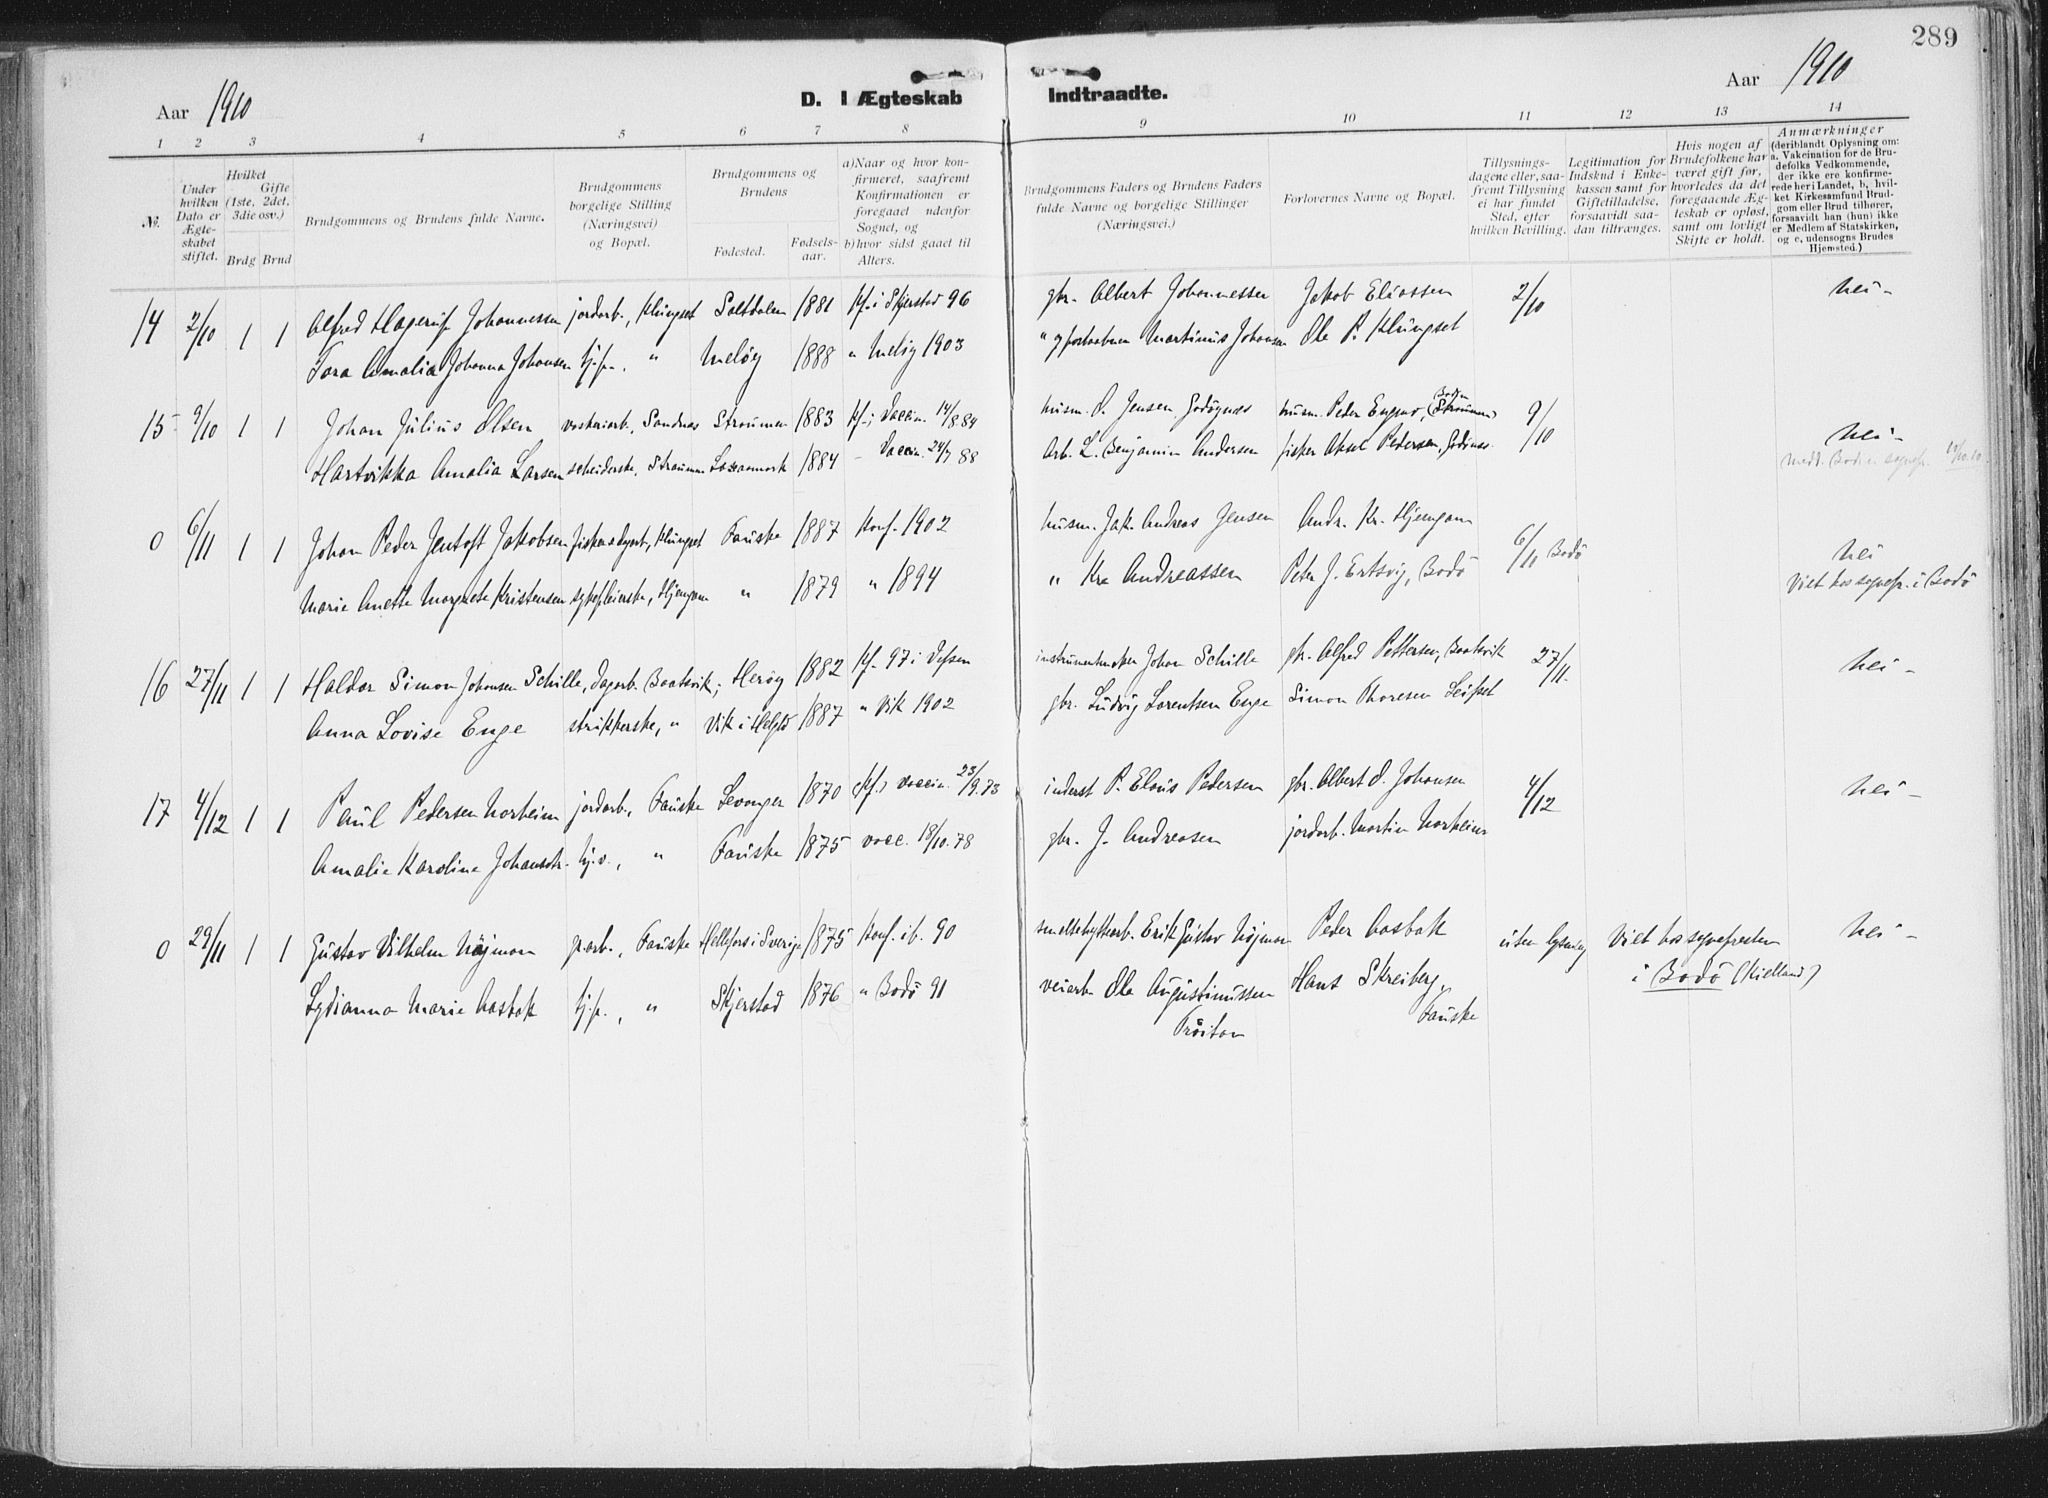 289
Aar 1910
D. I Ægteskab Indtraadte.
Aar 1910
1 2 3 4 5 6 7 8 9 10 11 12 13 14
No.
Under hvilken Dato er Ægteskabet stiftet.
Hvilket Gifte (1ste, 2det, 3die osv.)
Brdg Brud
Brudgommens og Brudens fulde Navne.
Brudgommens borgelige Stilling (Næringsvei) og Bopæl.
Brudgommens og Brudens
Fødested. Fødselsaar.
a) Naar og hvor konfirmeret, saafremt Konfirmationen er foregaaet udenfor Sognet, og b) hvor sidst gaaet til Alters.
Brudgommens Faders og Brudens Faders fulde Navne og borgelige Stillinger (Næringsvei.)
Forlovernes Navne og Bopæl.
Tillysningsdagene eller, saafremt Tillysning ei har fundet Sted, efter hvilken Bevilling.
Legitimation for Indsknd i Enkekassen samt for Giftetilladelse, forsaavidt saadan tiltrænges.
Hvis nogen af Brudefolkene har været gift før, hvorledes da det foregaaende Ægteskab er opløst, samt om lovligt Skifte er holdt.
Anmærkninger (deriblandt Oplysning om: a. Vakcination for de Brudefolks Vedkommende, der ikke ere konfirmerede her i Landet, b, hvilket Kirkesamfund Brudgom eller Brud tilhører, forsaavidt han (hun) ikke er Medlem af Statskirken, og c, udensogns Brudes Hjemsted.)
14 2/10 1 1 Alfred Hagerup Johannessen jordarb., Klungset Saltdalen 1881 kf. i Skjerstad 96 gbr. Albert Johannessen Jakob Eliassen 2/10 nei -
Tora Amalia Johanna Johansen tj.p., " Meløy 1888 " Meløy 1903 " Martinus Johansen Ole P. Klungset
15 9/10 1 1 Johan Julius Olsen Sandnes Strømmen 1883 kf. i Vaccin. 14/8 84 husm. O. Jensen, Godøynes husm. Peder Engmo, Bodin (Strømmen) 9/10 nei -
Hartvikka Amalia Larsen Straumen 1884 - Vaccin. 24/7 88 Arb. L. Benjamin Andersen fisker Aksel Pedersen, Godønes medd. Bodin sognepr. 10/10.10.
0 6/11 1 1 Johan Peder Jentoft Jakobsen Klungset Fauske 1887 Konf. 1902 husm. Jak. Andreas Jensen Andr. Kr. Hjemgam 6/11 Bodö nei
Marie Anette Margrete Kristensen sykepleierske, Hjemgam " 1879 " 1894 " Kr. Andreassen Peter J. Ertsvig, Bodö Viet hos sognepr. i Bodö
16 27/11 1 1 Haldor Simon Johansen Schille, dagarb. Baatsvik; Herøy 1882 kf. 97 i Vefsen instrumentmaker Johan Schille gbr. Alfred Pettersen, Baatsvik 27/11. nei -
Anna Lovise Enge strikkerske, " Vik i Helgld 1887 " Vik 1902 gbr. Ludvig Lorentsen Enge Simon Thoresen Leifset
17 4/12 1 1 Paul Pedersen Norheim jordarb., Fauske Levanger 1870 vaccin. 23/9.73 inderst P. Elaus Pedersen gbr. Albert O. Johansen 4/12 nei -
Amalie Karoline Johansdtr. tj.p., " Fauske 1875 vacc. 18/10.78 gbr. J. Andreasen jordarb. Martin Norheim
0 29/11 1 1 Gustav Vilhelm Nöjman gr.arb., Fauske Hellefors i Sverige 1875 Konf. ib. 90 smeltehyttearb. Erik Gustav Nöjman Peder Aasbak uten lysning Viet hos sognepresten nei -
Lydianna Marie Aasbak tj.p., " Skjerstad 1876 " Bodö 91 veiarb. Ole Augustinussen Hans Skreiberg, i Bodö (Kielland)
Tröitan Fauske